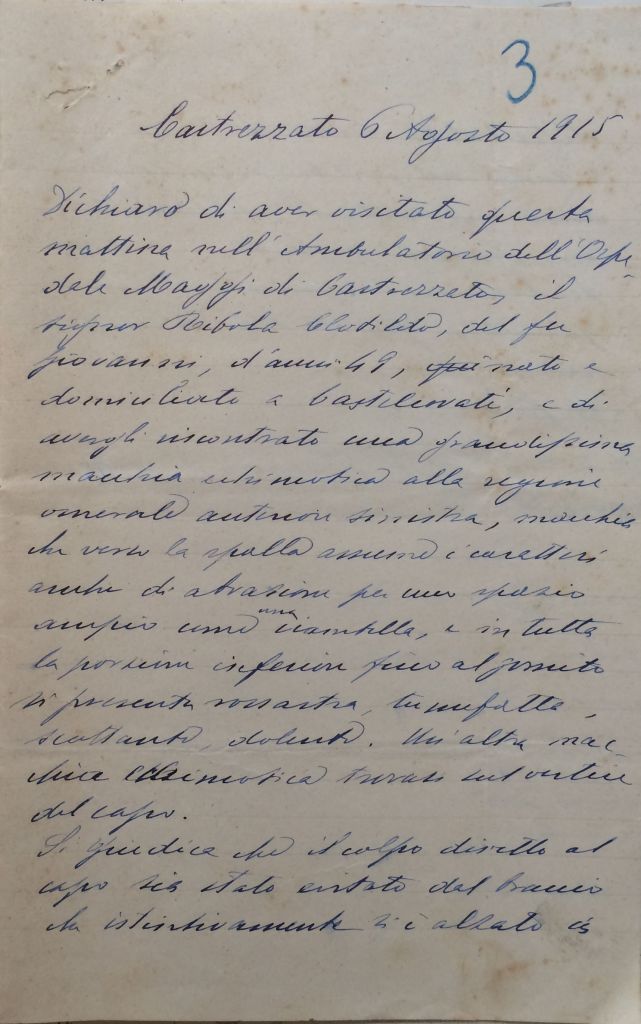 3
Castrezzato 6 Agosto 1915
Dichiaro di aver visitato questa
mattina nell'Ambulatorio dell'Ospe-
dale Maggi di Castrezzato, il
signor Ribola Clotildo, del fu
Giovanni, d'anni 49, qui nato e
domiciliato a Castelcovati, e di
avergli riscontrato una grandissima
macchia echimotica alla regione
omerale anteriore sinistra, macchia
che verso la spalla assume i caratteri
anche di abrasione per uno spazio
ampio come una ciambella, e in tutta
la porzione inferiore fino al gomito
si presenta rossastra, tumefatta,
scottante, dolente. Un'altra mac-
chia echimotica trovasi sul vertice
del capo.
Si giudica che il colpo diretto al
capo sia stato evitato dal braccio
che istintivamente si è alzato in